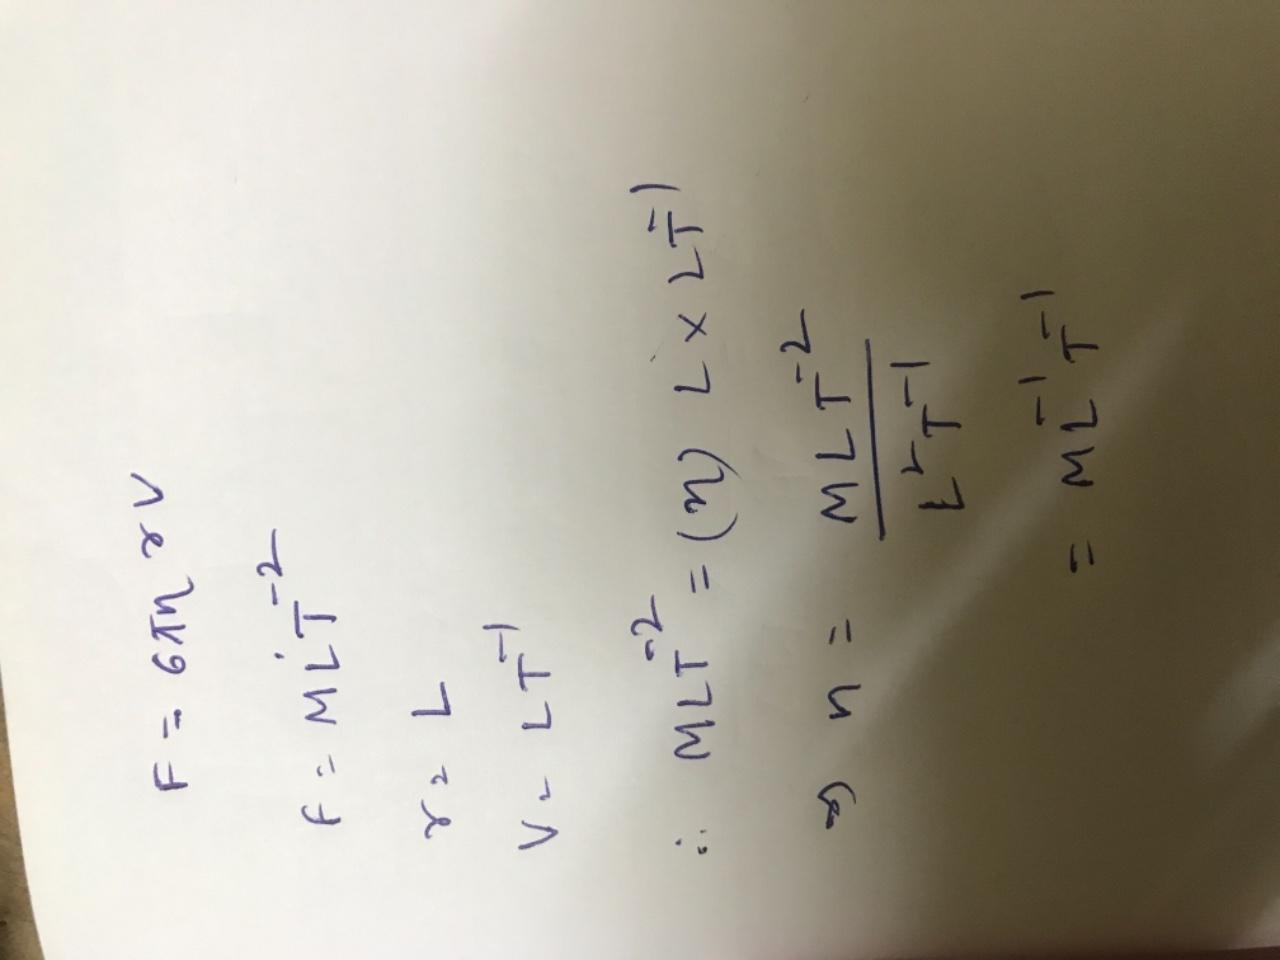 F = 6πη r V
F = MLT⁻²
r = L
V = LT⁻¹
∴ MLT⁻² = (η) L × LT⁻¹
⇒ η = MLT⁻² / L²T⁻¹
= ML⁻¹T⁻¹